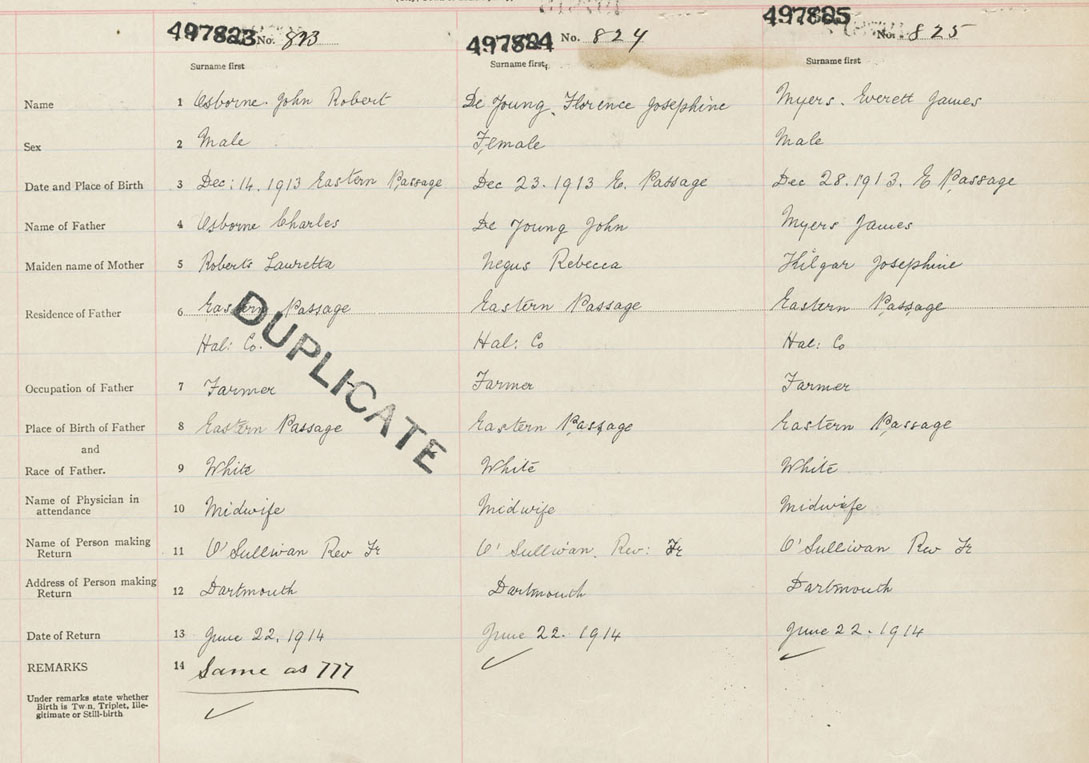 497823 No. 823
497824 No. 824
497825 No. 825
Surname first
Surname first,
Surname first
Name 1 Osborne. John Robert De Young. Florence Josephine Myers. Everett James
Sex 2 Male Female Male
Date and Place of Birth 3 Dec: 14. 1913 Eastern Passage Dec 23. 1913 E. Passage Dec 28. 1913. E Passage
Name of Father 4 Osborne Charles De Young John Myers James
Maiden name of Mother 5 Roberts Lauretta Negus Rebecca Hilgar Josephine
Residence of Father 6 Eastern Passage Eastern Passage Eastern Passage
Hal: Co. Hal: Co Hal: Co
DUPLICATE
Occupation of Father 7 Farmer Farmer Farmer
Place of Birth of Father 8 Eastern Passage Eastern Passage Eastern Passage
and
Race of Father. 9 White White White
Name of Physician in
attendance 10 Midwife Midwife Midwife
Name of Person making
Return 11 O'Sullivan Rev Fr O'Sullivan. Rev: Fr O'Sullivan Rev Fr
Address of Person making
Return 12 Dartmouth Dartmouth Dartmouth
Date of Return 13 June 22. 1914 June 22. 1914 June 22. 1914
REMARKS 14 Same as 777
Under remarks state whether
Birth is Twin, Triplet, Ille-
gitimate or Still-birth